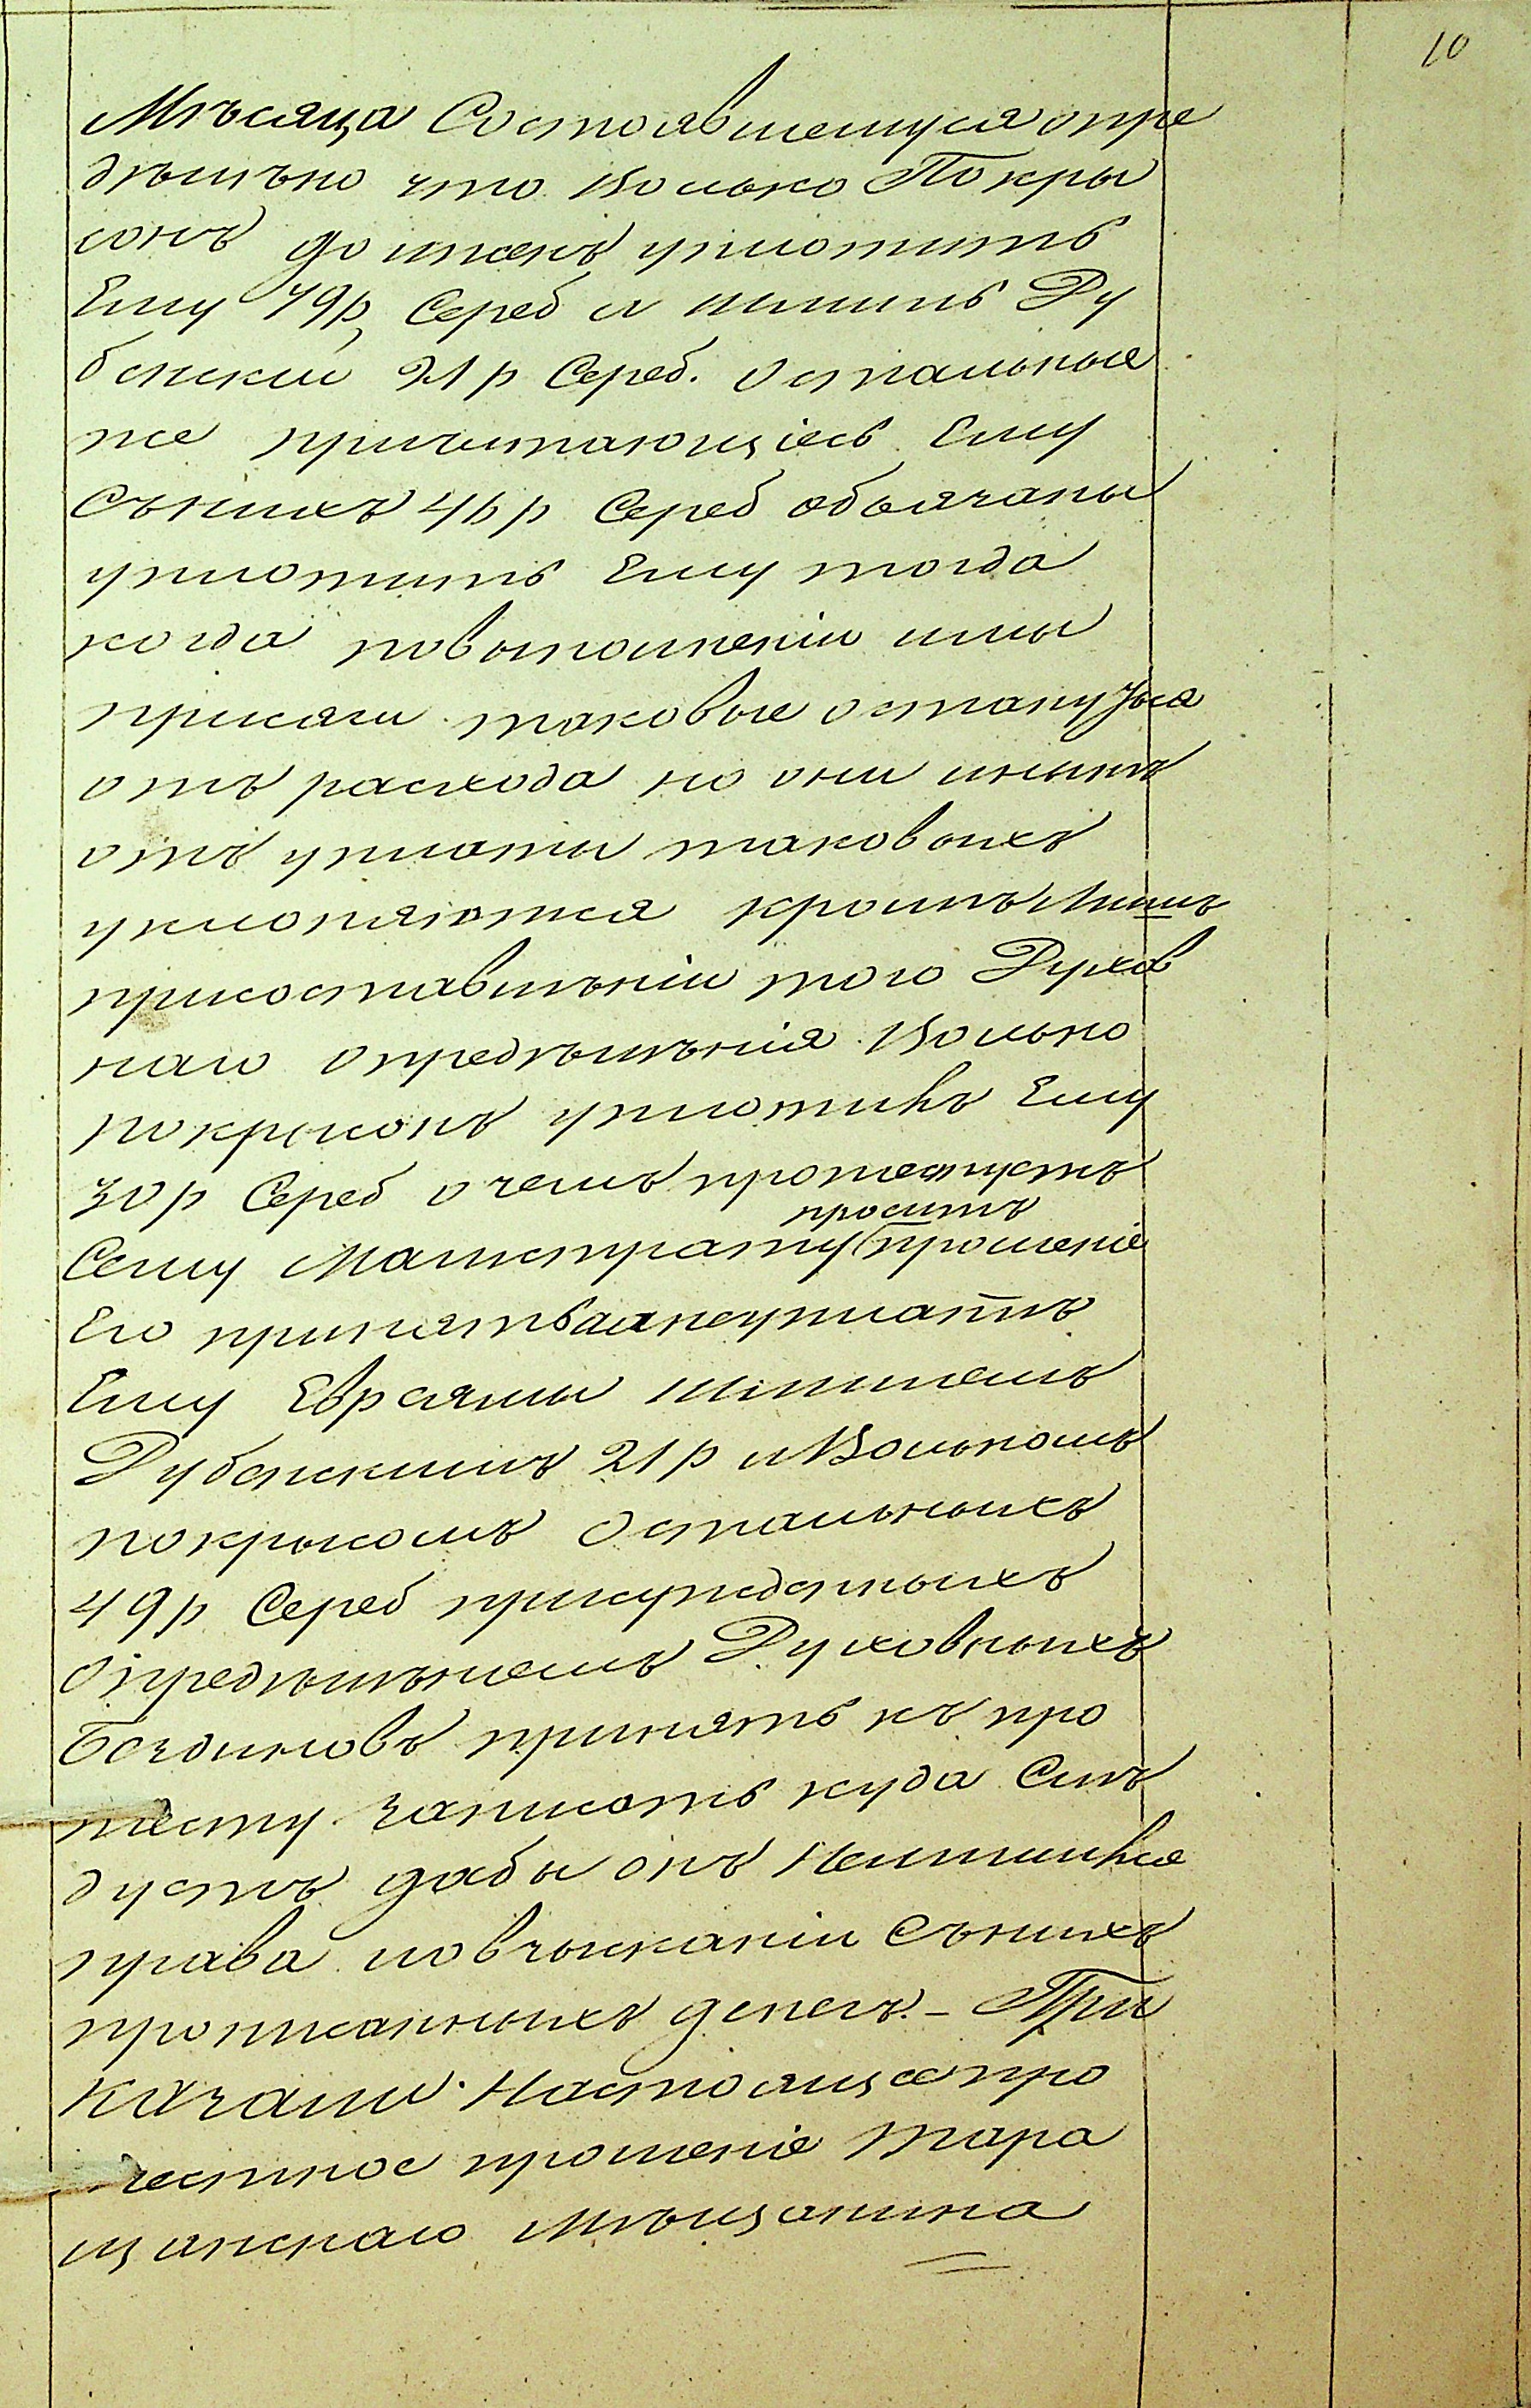 10
Мѣсяца Состоявшемуся опре
дѣлѣно что Волько Покры
сонъ долженъ уплотить
Ему 79р Сереб и Шлиль Ду
бенскій 21 р Сереб. Остальные
же причитающіесь Ему
Съпихъ 46 р Сереб обьязаны
уплотить Ему тогда
когда повыполненіи ими
присяги таковые останутся
отъ расхода но они иныхъ
отъ уплоты таковыхъ
уклоняются кромѣ
присоставлѣніи того Духов
наго опредѣлѣнія Волько
покрысонъ уплотивъ Ему
30 р Сереб о чемъ протестуетъ
проситъ
Сему Магистрату прошеніе
Его принять аанеуплатъ
Ему Евреями Шлилемъ
Дубенскимъ 21 р и Волькомъ
покрысомъ Остальныхъ
49 р Сереб присужденныхъ
Опредѣлѣнемъ Духовныхъ
Бездиновъ принять къ про
тесту записать куда Слѣ
дуетъ дабы онъ Нелишився
права повзысканіи Съпихъ
прописанныхъ денегъ. - При
казали. Настоящее про
тестное прошеніе Тара
щанскаго Мѣщанина